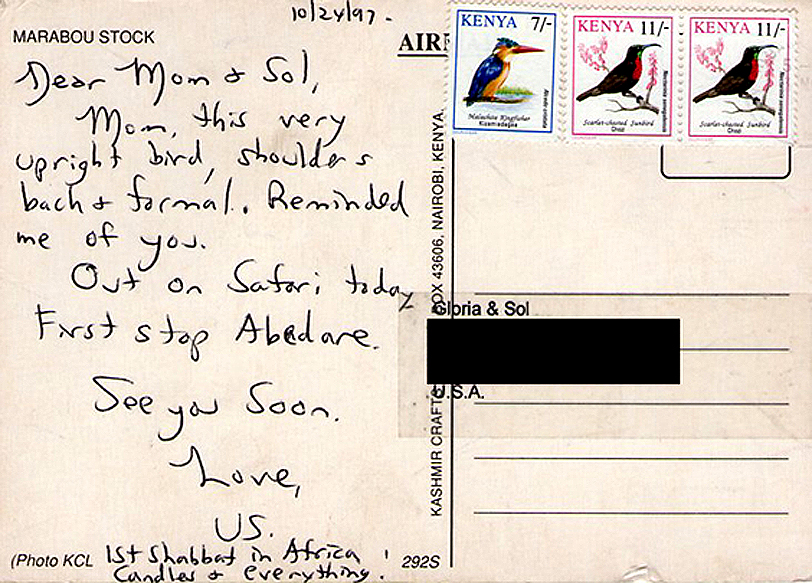 10/24/97-
MARABOU STOCK
Dear Mom & Sol,
Mom, this very
upright bird, shoulders
back & formal. Reminded
me of you.
Out on Safari today
First stop Abedare.
See you Soon.
Love,
US.
1st Shabbat in Africa!
Candles & everything!
(Photo KCL
292S
KASHMIR CRAFTS
BOX 43606, NAIROBI, KENYA.
KENYA 7/-
Malachite Kingfisher
Kisamadagaa
Alcedo cristata
KENYA 11/-
Scarlet-chested Sunbird
Chozi
Nectarinia senegalensis
KENYA 11/-
Scarlet-chested Sunbird
Chozi
Nectarinia senegalensis
Gloria & Sol
U.S.A.